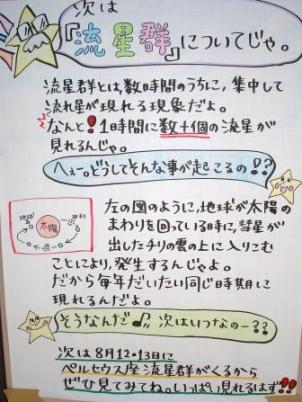 次は
『流星群』についてじゃ。
流星群とは、数時間のうちに、集中して
流れ星が現れる現象だよ。
なんと！1時間に数十個の流星が
見れるんじゃ。
へぇー。どうしてそんな事が起こるの!?
太陽
左の図のように、地球が太陽の
まわりを回っている時に、彗星が
出したチリの雲の上に入りこむ
ことにより、発生するんじゃよ。
だから毎年だいたい同じ時期に
現れるんだよ。
そうなんだ♪ 次はいつなのー??
次は8月12・13日に
ペルセウス座流星群がくるから
ぜひ見てみてね。いっぱい見れるはず!!